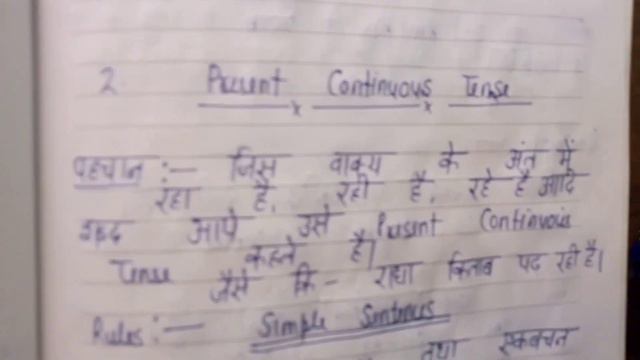 2. Present Continuous Tense
पहचान :— जिस वाक्य के अंत में
रहा है, रही है, रहे है आदि
शब्द आये उसे Present Continuous
Tense कहते है।
जैसे कि - राधा किताब पढ रही है।
Rules :— Simple Sentences
तथा एकवचन